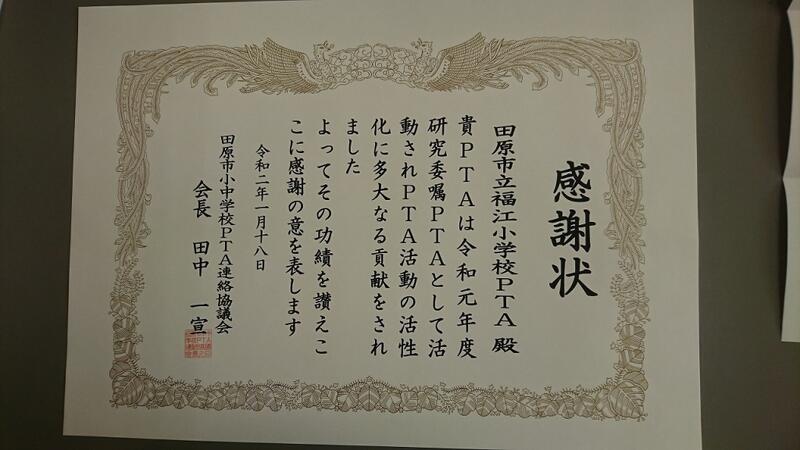 感謝状
田原市立福江小学校PTA 殿
貴PTAは令和元年度
研究委嘱PTAとして活
動されPTA活動の活性
化に多大なる貢献をされ
ました
よってその功績を讃えこ
こに感謝の意を表します
令和二年一月十八日
田原市小中学校PTA連絡協議会
会長 田中 一宣